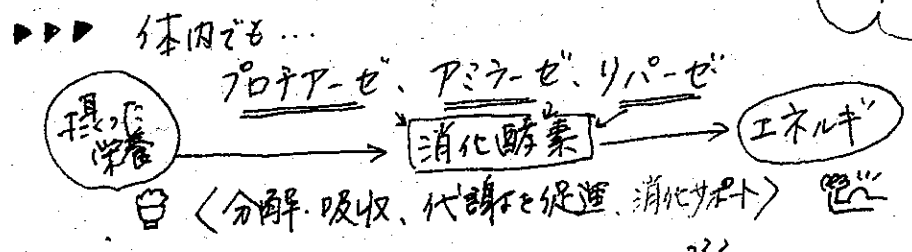 ▶▶▶ 体内でも…
プロテアーゼ、アミラーゼ、リパーゼ
摂った
栄養
消化酵素
エネルギ
〈分解・吸収、代謝を促進、消化サポート〉